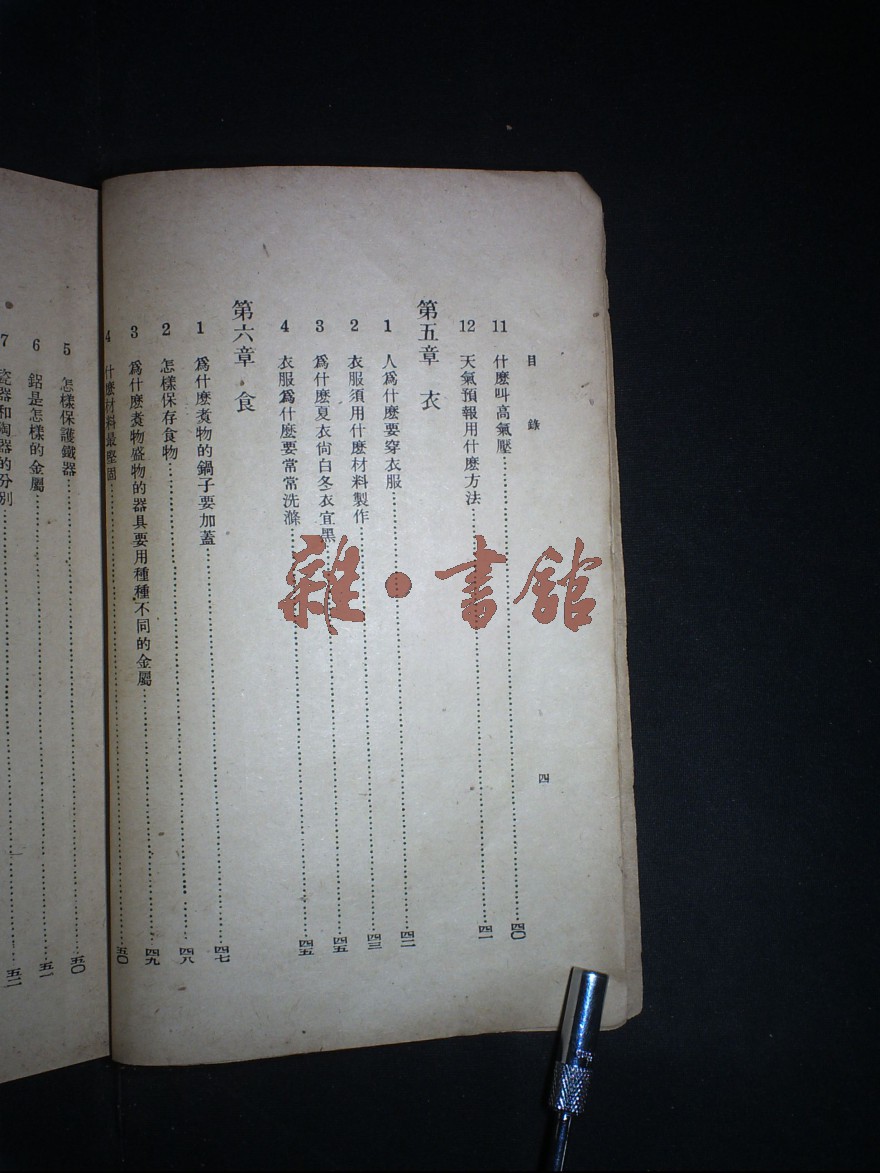 目錄
四
11 什麼叫高氣壓……四〇
12 天氣預報用什麼方法……四一
第五章 衣
1 人爲什麼要穿衣服……四二
2 衣服須用什麼材料製作……四三
3 爲什麼夏衣尙白冬衣宜黑……四五
4 衣服爲什麼要常常洗滌……四五
第六章 食
1 爲什麼煮物的鍋子要加蓋……四七
2 怎樣保存食物……四八
3 爲什麼煮物盛物的器具要用種種不同的金屬……四九
4 什麼材料最堅固……五〇
5 怎樣保護鐵器……五〇
6 鋁是怎樣的金屬……五一
7 瓷器和陶器的分別……五二
雜·書館